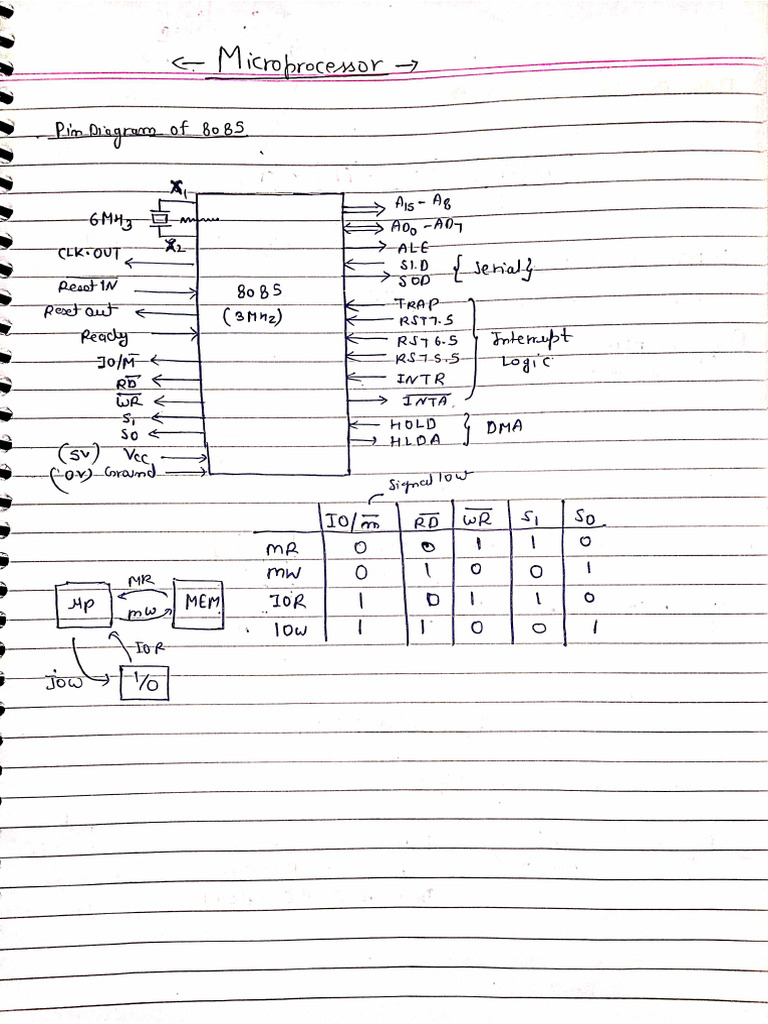 ← Microprocessor →
Pin Diagram of 8085
X₁
6MHz
X₂
CLK·OUT
R̅e̅s̅e̅t̅ ̅I̅N̅
Reset Out
Ready
IO/M̅
R̅D̅
W̅R̅
S₁
S0
(5V) Vcc
(0V) Ground
8085
(3MHz)
A₁₅ - A₈
AD₀ - AD₇
ALE
SID
SOD
{ Serial }
TRAP
RST7.5
RST 6.5
RST5.5
INTR
I̅N̅T̅A̅
Interrupt
Logic
HOLD
HLDA
DMA
Signal low
IO/m̅ R̅D̅ W̅R̅ S₁ S0
MR 0 0 1 1 0
MW 0 1 0 0 1
IOR 1 0 1 1 0
IOW 1 1 0 0 1
MP
MR
MW
MEM
IOR
IOW
I/O